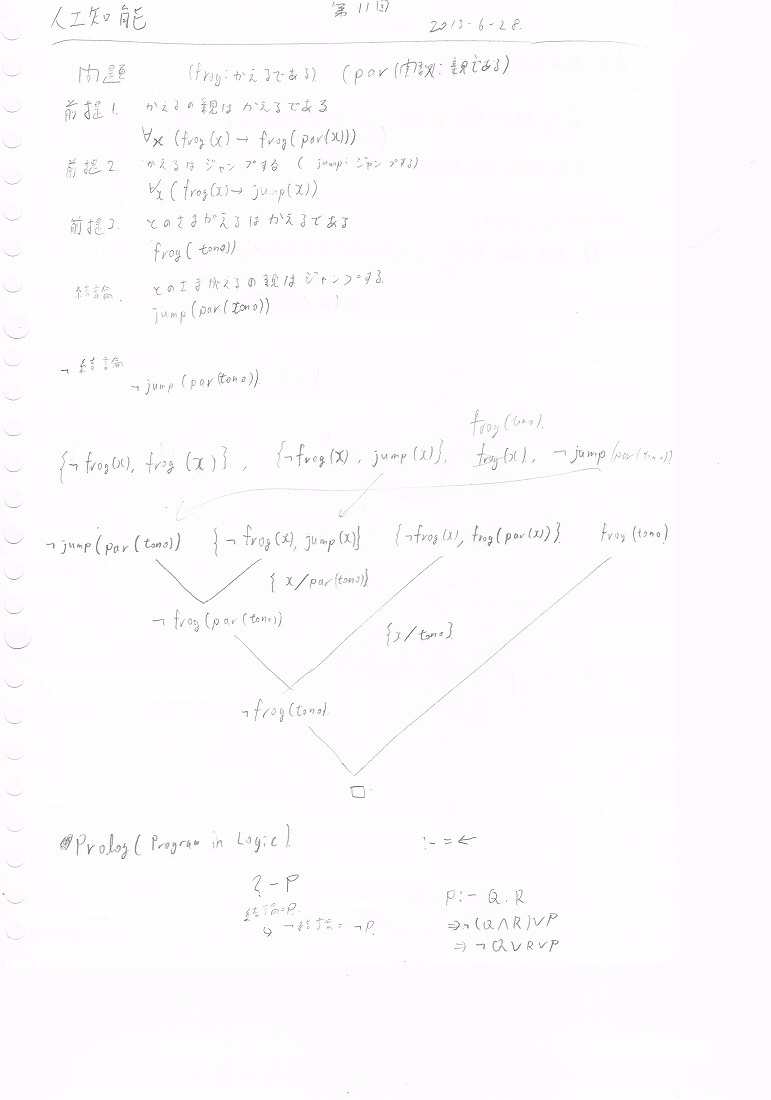 人工知能 第11回
2013-6-28.
問題 (frog:かえるである) (par(関数:親である)
前提1. かえるの親はかえるである
∀x (frog(x)→frog(par(x)))
前提2. かえるはジャンプする (jump:ジャンプする)
∀x (frog(x)→jump(x))
前提3. とのさまがえるはかえるである
frog(tono))
結論. とのさまがえるの親はジャンプする.
jump(par(tono))
¬結論
¬jump(par(tono)).
frog(tono).
{¬frog(x), frog(x)}, {¬frog(x), jump(x)}, frog(x), ¬jump(par(tono))
¬jump(par(tono)) {¬frog(x), jump(x)} {¬frog(x), frog(par(x))} frog(tono)
{x/par(tono)}
¬frog(par(tono))
{x/tono}
¬frog(tono).
□
Prolog(Program in Logic). :- = ←
?-P
P:-Q.R
結論=P.
↳¬結論=¬P.
⇒¬(Q∧R)∨P
⇒¬Q∨R∨P